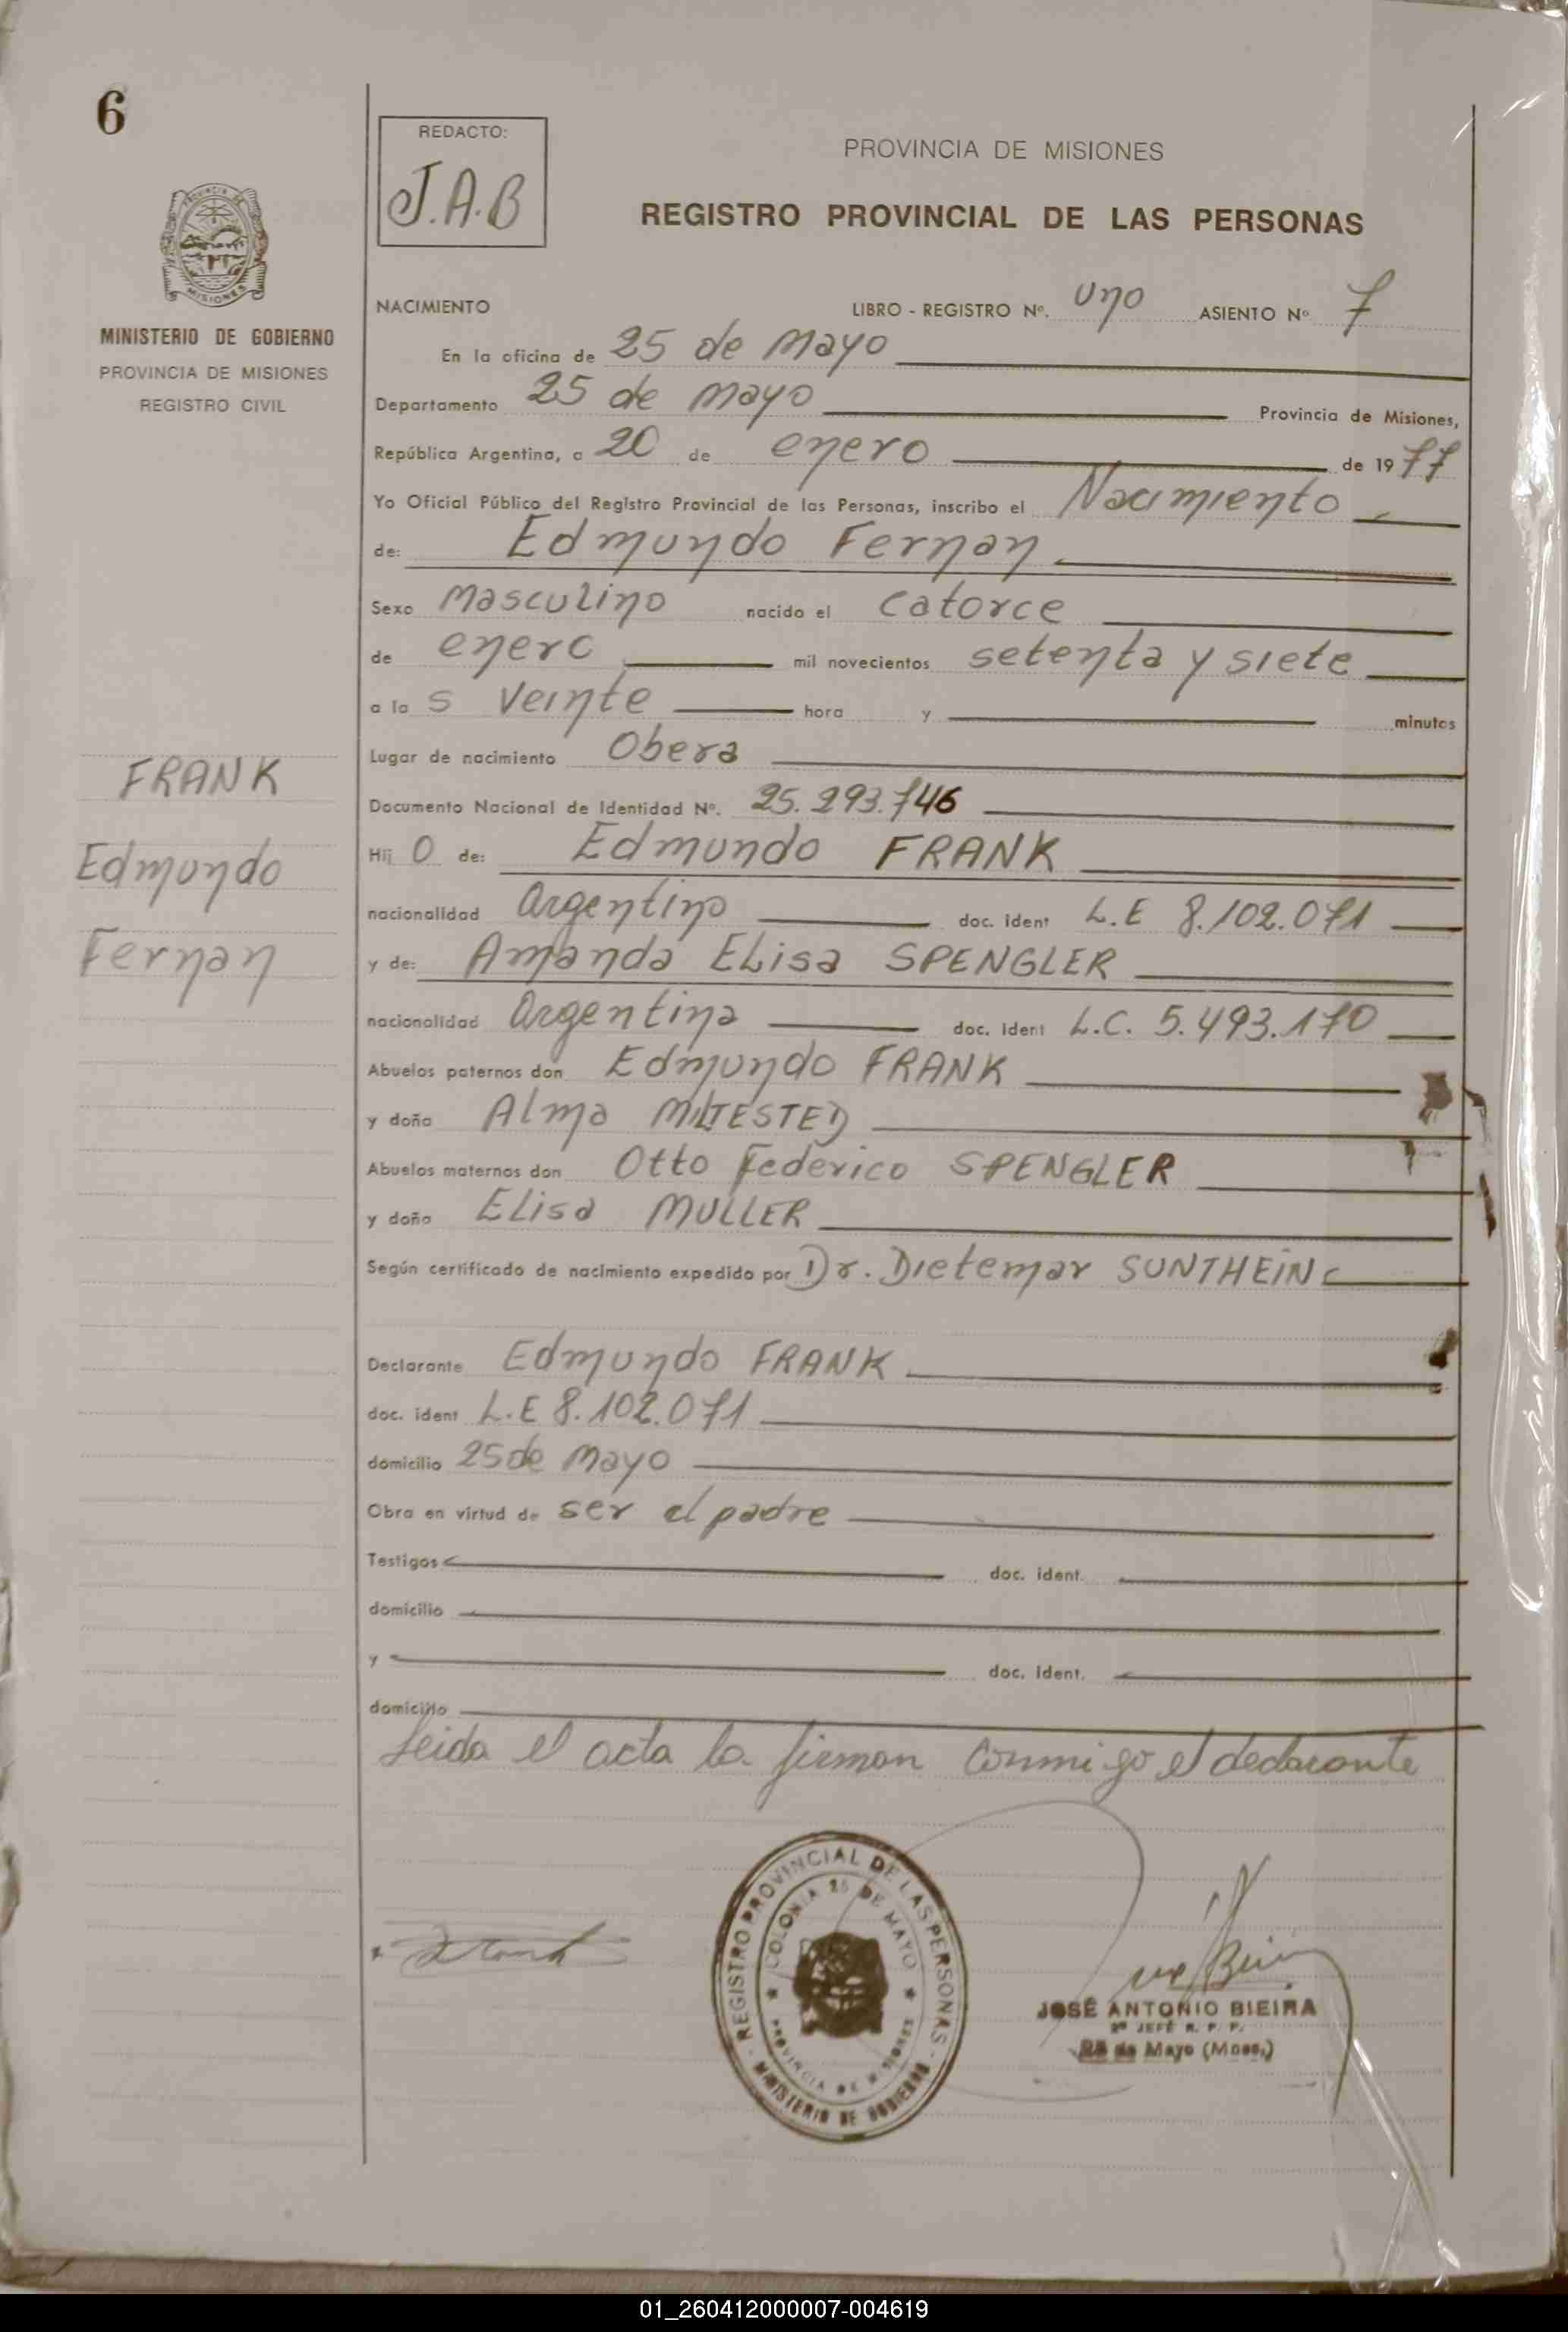 6
REDACTO:
J.A.B
PROVINCIA DE MISIONES
REGISTRO PROVINCIAL DE LAS PERSONAS
PROVINCIA DE
MISIONES
MINISTERIO DE GOBIERNO
PROVINCIA DE MISIONES
REGISTRO CIVIL
NACIMIENTO LIBRO - REGISTRO Nº. uno ASIENTO Nº 7
En la oficina de 25 de Mayo
Departamento 25 de Mayo Provincia de Misiones,
República Argentina, a 20 de enero de 1977
Yo Oficial Público del Registro Provincial de las Personas, inscribo el Nacimiento
de: Edmundo Fernan
Sexo Masculino nacido el catorce
de enero mil novecientos setenta y siete
a la s veinte hora y minutos
Lugar de nacimiento Obera
Documento Nacional de Identidad Nº. 25.293.746
FRANK
Edmundo
Fernan
Hij o de: Edmundo FRANK
nacionalidad Argentino doc. ident L.E 8.102.071
y de: Amanda Elisa SPENGLER
nacionalidad Argentina doc. ident L.C. 5.493.170
Abuelos paternos don Edmundo FRANK
y doña Alma MILTESTED
Abuelos maternos don Otto Federico SPENGLER
y doña Elisa MULLER
Según certificado de nacimiento expedido por Dr. Dietemar SUNTHEIN
Declarante Edmundo FRANK
doc. ident L.E 8.102.071
domicilio 25 de Mayo
Obra en virtud de ser el padre
Testigos doc. ident.
domicilio
y doc. ident.
domicilio
Leida el acta la firman conmigo el declarante
REGISTRO PROVINCIAL DE LAS PERSONAS
COLONIA 25 DE MAYO
PROVINCIA DE MISIONES
MINISTERIO DE GOBIERNO
JOSÉ ANTONIO BIEIRA
2º JEFE R. P. P.
25 de Mayo (Mnes.)
01_260412000007-004619